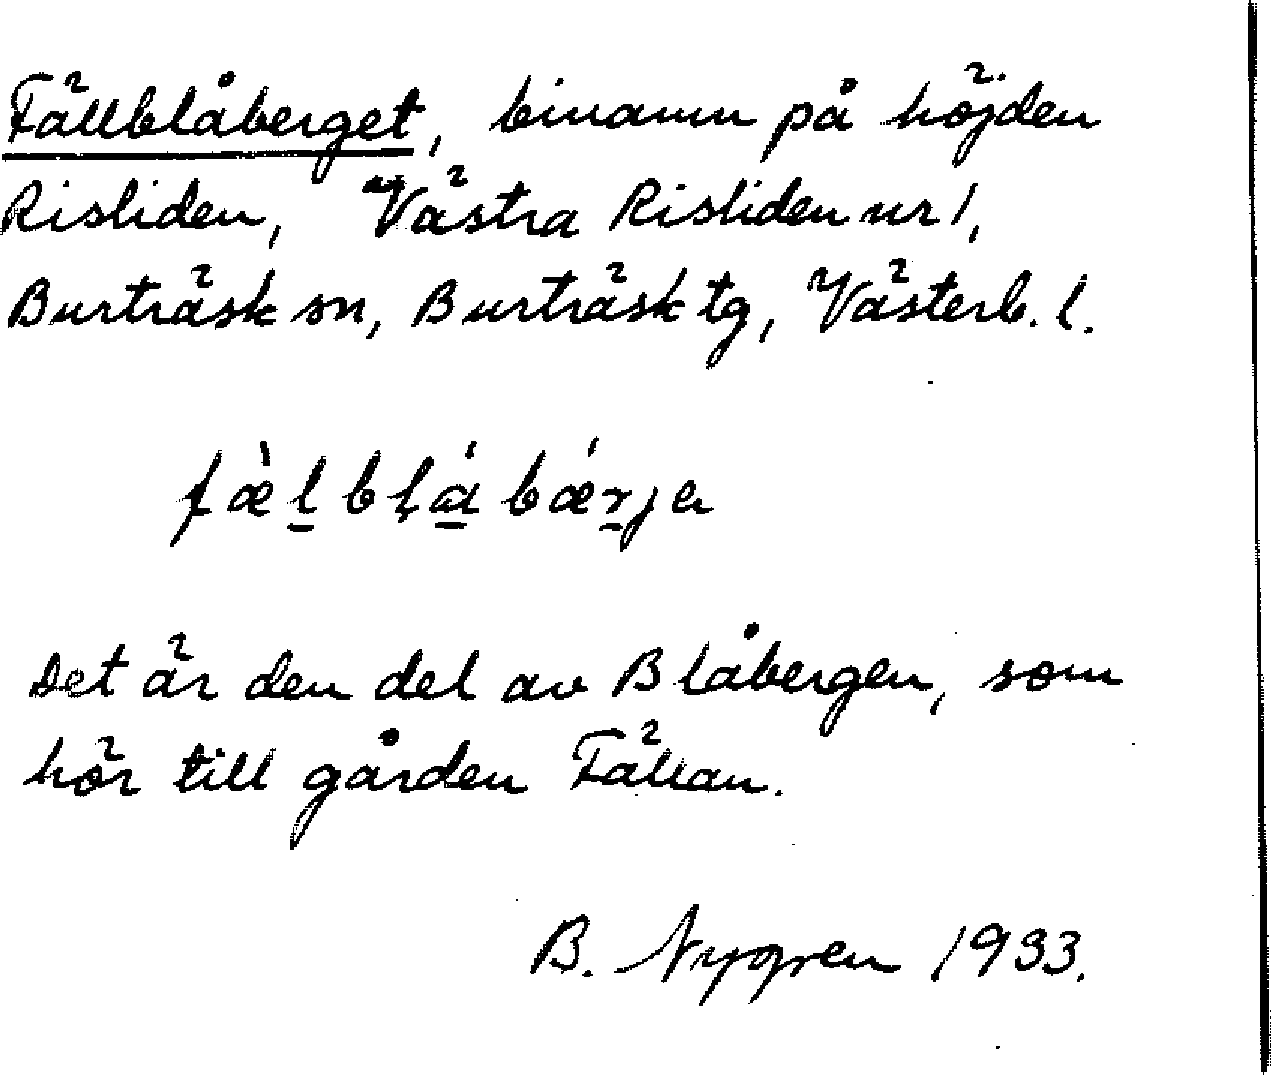 Fällblåberget, binamn på höjden
Risliden, Västra Risliden nr 1,
Burträsk sn, Burträsk tg, Västerb. l.
fæ̀l̲bḷá̲bǽr̲ję
Det är den del av Blåbergen, som
hör till gården Fällan.
B. Nygren 1933.